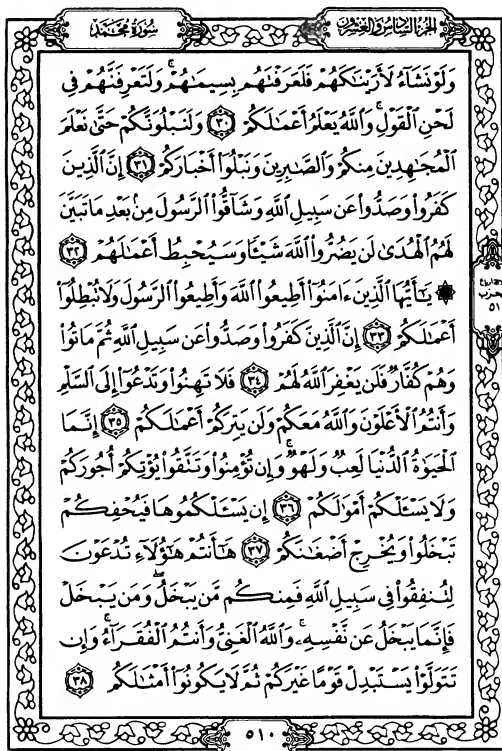 سُورَةُ مُحَمَّد الجُزْءُ السَّادِسُ وَالعِشْرُونَ
وَلَوْ نَشَآءُ لَأَرَيْنَٰكَهُمْ فَلَعَرَفْتَهُم بِسِيمَٰهُمْ ۚ وَلَتَعْرِفَنَّهُمْ فِى
لَحْنِ ٱلْقَوْلِ ۚ وَٱللَّهُ يَعْلَمُ أَعْمَٰلَكُمْ ٣٠ وَلَنَبْلُوَنَّكُمْ حَتَّىٰ نَعْلَمَ
ٱلْمُجَٰهِدِينَ مِنكُمْ وَٱلصَّٰبِرِينَ وَنَبْلُوَا۟ أَخْبَارَكُمْ ٣١ إِنَّ ٱلَّذِينَ
كَفَرُوا۟ وَصَدُّوا۟ عَن سَبِيلِ ٱللَّهِ وَشَآقُّوا۟ ٱلرَّسُولَ مِنۢ بَعْدِ مَا تَبَيَّنَ
لَهُمُ ٱلْهُدَىٰ لَن يَضُرُّوا۟ ٱللَّهَ شَيْـًٔا وَسَيُحْبِطُ أَعْمَٰلَهُمْ ٣٢
۞ يَٰٓأَيُّهَا ٱلَّذِينَ ءَامَنُوٓا۟ أَطِيعُوا۟ ٱللَّهَ وَأَطِيعُوا۟ ٱلرَّسُولَ وَلَا تُبْطِلُوٓا۟
أَعْمَٰلَكُمْ ٣٣ إِنَّ ٱلَّذِينَ كَفَرُوا۟ وَصَدُّوا۟ عَن سَبِيلِ ٱللَّهِ ثُمَّ مَاتُوا۟
وَهُمْ كُفَّارٌ فَلَن يَغْفِرَ ٱللَّهُ لَهُمْ ٣٤ فَلَا تَهِنُوا۟ وَتَدْعُوٓا۟ إِلَى ٱلسَّلْمِ
وَأَنتُمُ ٱلْأَعْلَوْنَ وَٱللَّهُ مَعَكُمْ وَلَن يَتِرَكُمْ أَعْمَٰلَكُمْ ٣٥ إِنَّمَا
ٱلْحَيَوٰةُ ٱلدُّنْيَا لَعِبٌ وَلَهْوٌ ۚ وَإِن تُؤْمِنُوا۟ وَتَتَّقُوا۟ يُؤْتِكُمْ أُجُورَكُمْ
وَلَا يَسْـَٔلْكُمْ أَمْوَٰلَكُمْ ٣٦ إِن يَسْـَٔلْكُمُوهَا فَيُحْفِكُمْ
تَبْخَلُوا۟ وَيُخْرِجْ أَضْغَٰنَكُمْ ٣٧ هَٰٓأَنتُمْ هَٰٓؤُلَآءِ تُدْعَوْنَ
لِتُنفِقُوا۟ فِى سَبِيلِ ٱللَّهِ فَمِنكُم مَّن يَبْخَلُ ۖ وَمَن يَبْخَلْ
فَإِنَّمَا يَبْخَلُ عَن نَّفْسِهِۦ ۚ وَٱللَّهُ ٱلْغَنِىُّ وَأَنتُمُ ٱلْفُقَرَآءُ ۚ وَإِن
تَتَوَلَّوْا۟ يَسْتَبْدِلْ قَوْمًا غَيْرَكُمْ ثُمَّ لَا يَكُونُوٓا۟ أَمْثَٰلَكُم ٣٨
٥١
٥١٠